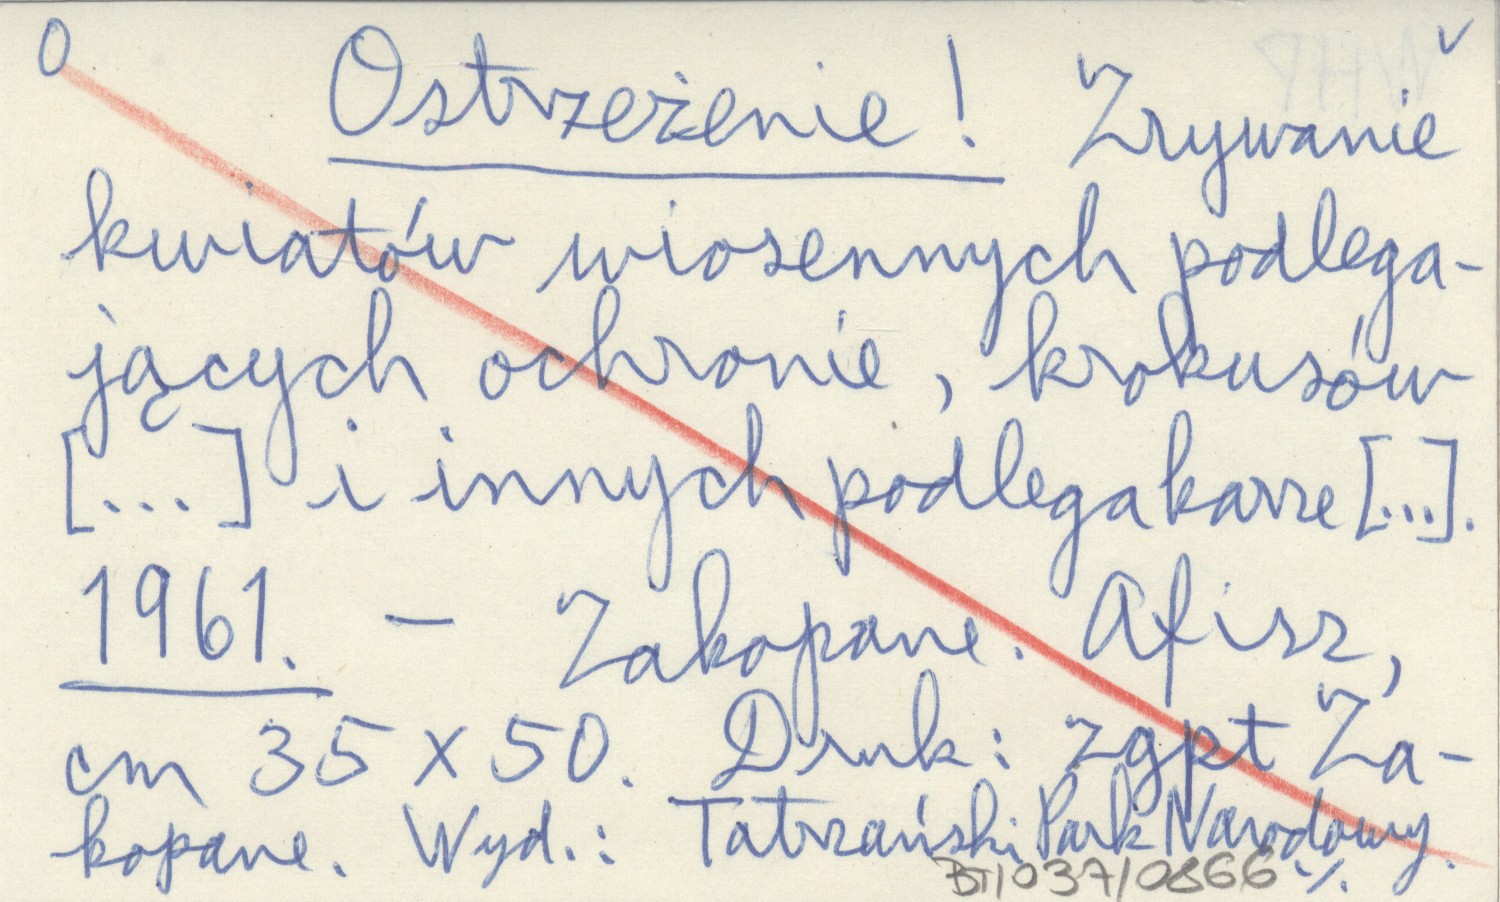 O
Ostrzeżenie! Zrywanie
kwiatów wiosennych podlega-
jących ochronie, krokusów
[...] i innych podlega karze [...].
1961. – Zakopane. Afisz,
cm 35 x 50. Druk: zgpt Za-
kopane. Wyd.: Tatrzański Park Narodowy.
BT/037/0866 ·/.